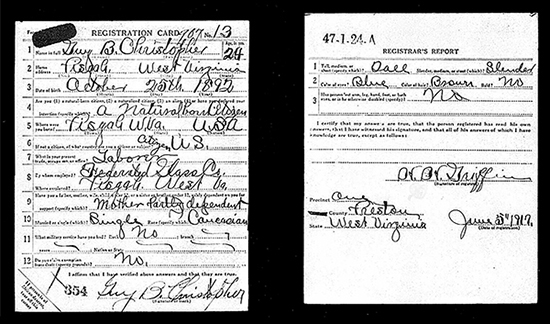 REGISTRATION CARD 787 No. 13
1 Name in full Guy B. Christopher Age, in yrs. 24
2 Home address Pisgah West Virginia
3 Date of birth October 25th 1892
4 Are you (1) a natural-born citizen, (2) a naturalized citizen, (3) an alien, (4) or have you declared your intention (specify which)? a Natural born Citizen
5 Where were you born? Pisgah W.Va. USA
6 If not a citizen, of what country are you a citizen or subject? Citizen U.S.
7 What is your present trade, occupation, or office? Labor
8 By whom employed? Federal Glass Co.
Where employed? Pisgah West Va.
9 support (specify which)? Mother Partly dependent
10 Married or single (which)? Single Race (specify which)? Caucasian
11 What military service have you had? No
12 Do you claim exemption from draft (specify grounds)? No.
I affirm that I have verified above answers and that they are true.
354 Guy B. Christopher
47-1-24. A
REGISTRAR'S REPORT
1 Tall, medium, or short (specify which)? Tall Slender, medium, or stout (which)? Slender
2 Color of eyes? Blue Color of hair? Brown Bald? No
3 Has person lost arm, leg, hand, foot, or both eyes, or is he otherwise disabled (specify)? No
I certify that my answers are true, that the person registered has read his own answers, that I have witnessed his signature, and that all of his answers of which I have knowledge are true, except as follows:
(Signature of registrar)
Precinct One
County Preston
State West Virginia June 5th 1917.
(Date of registration)